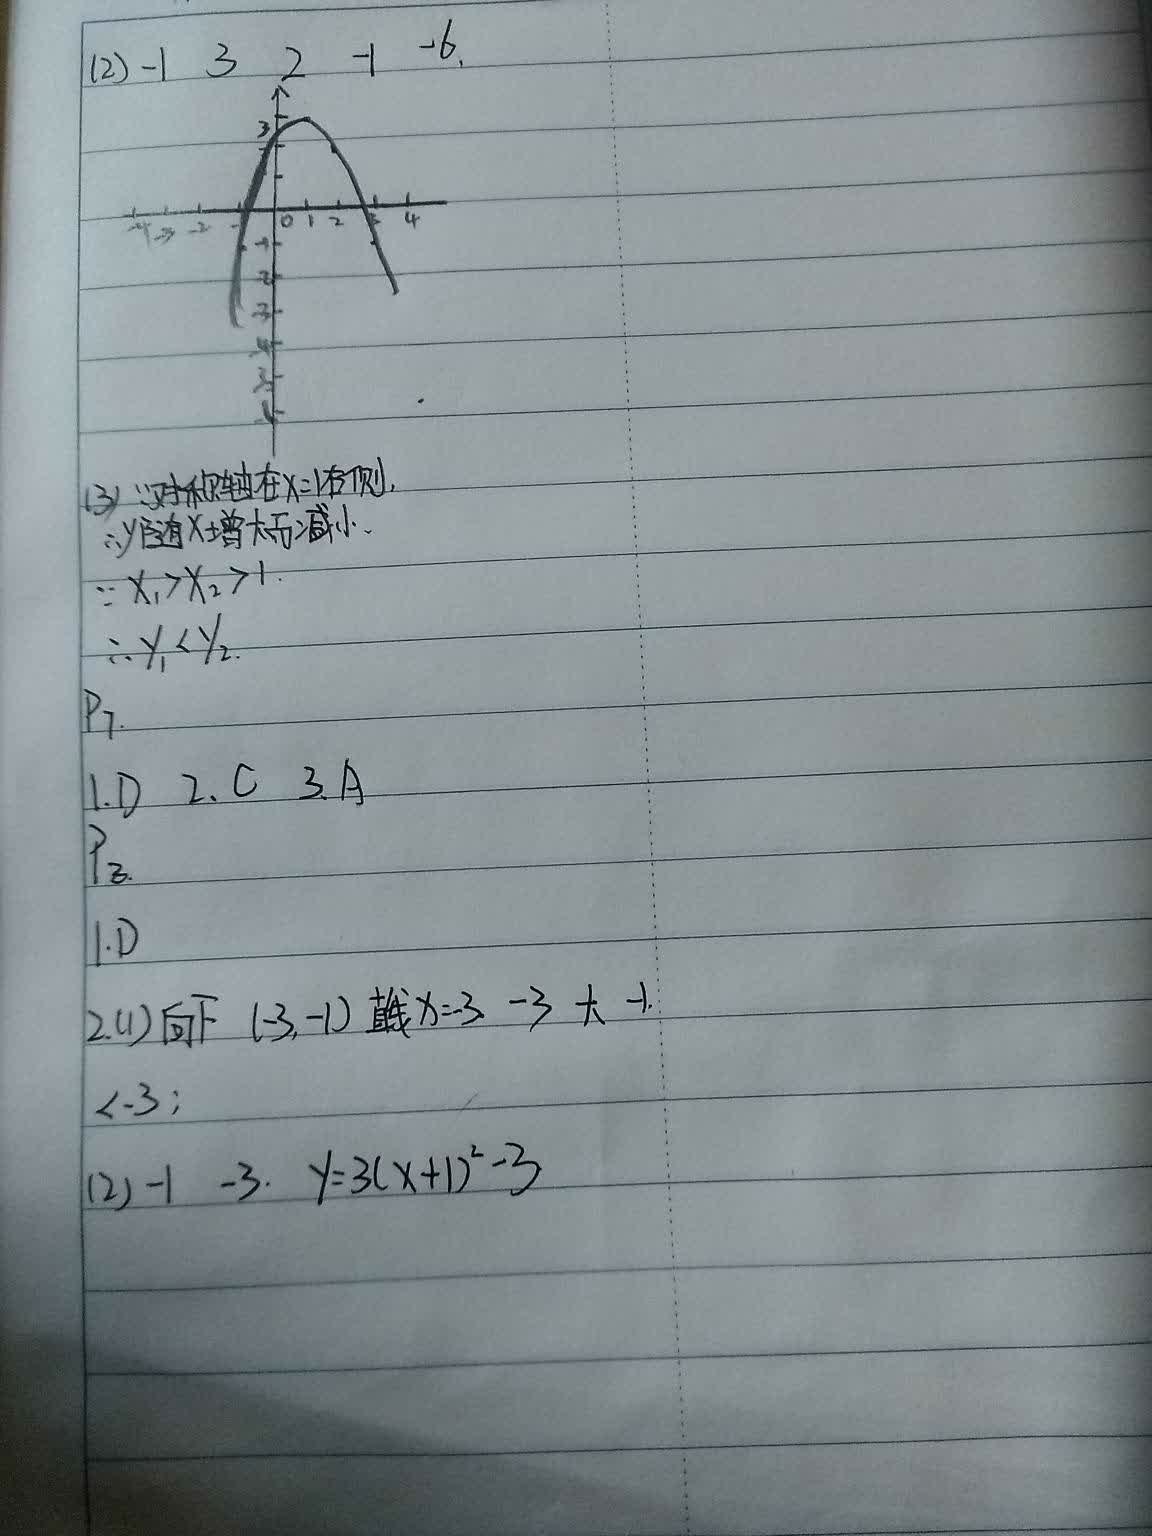 (2) -1 3 2 -1 -6.
3
-4 -3 -2 0 1 2 3 4
-1
-2
-3
-4
(3) ∵对称轴在x=1右侧,
∴y随着x增大而减小.
∵ x₁>x₂>1.
∴ y₁<y₂.
P7.
1.D 2.C 3.A
P3.
1.D
2.(1)向下 (-3,-1) 直线x=-3 -3 大 -1.
<-3;
(2) -1 -3. y=3(x+1)²-3